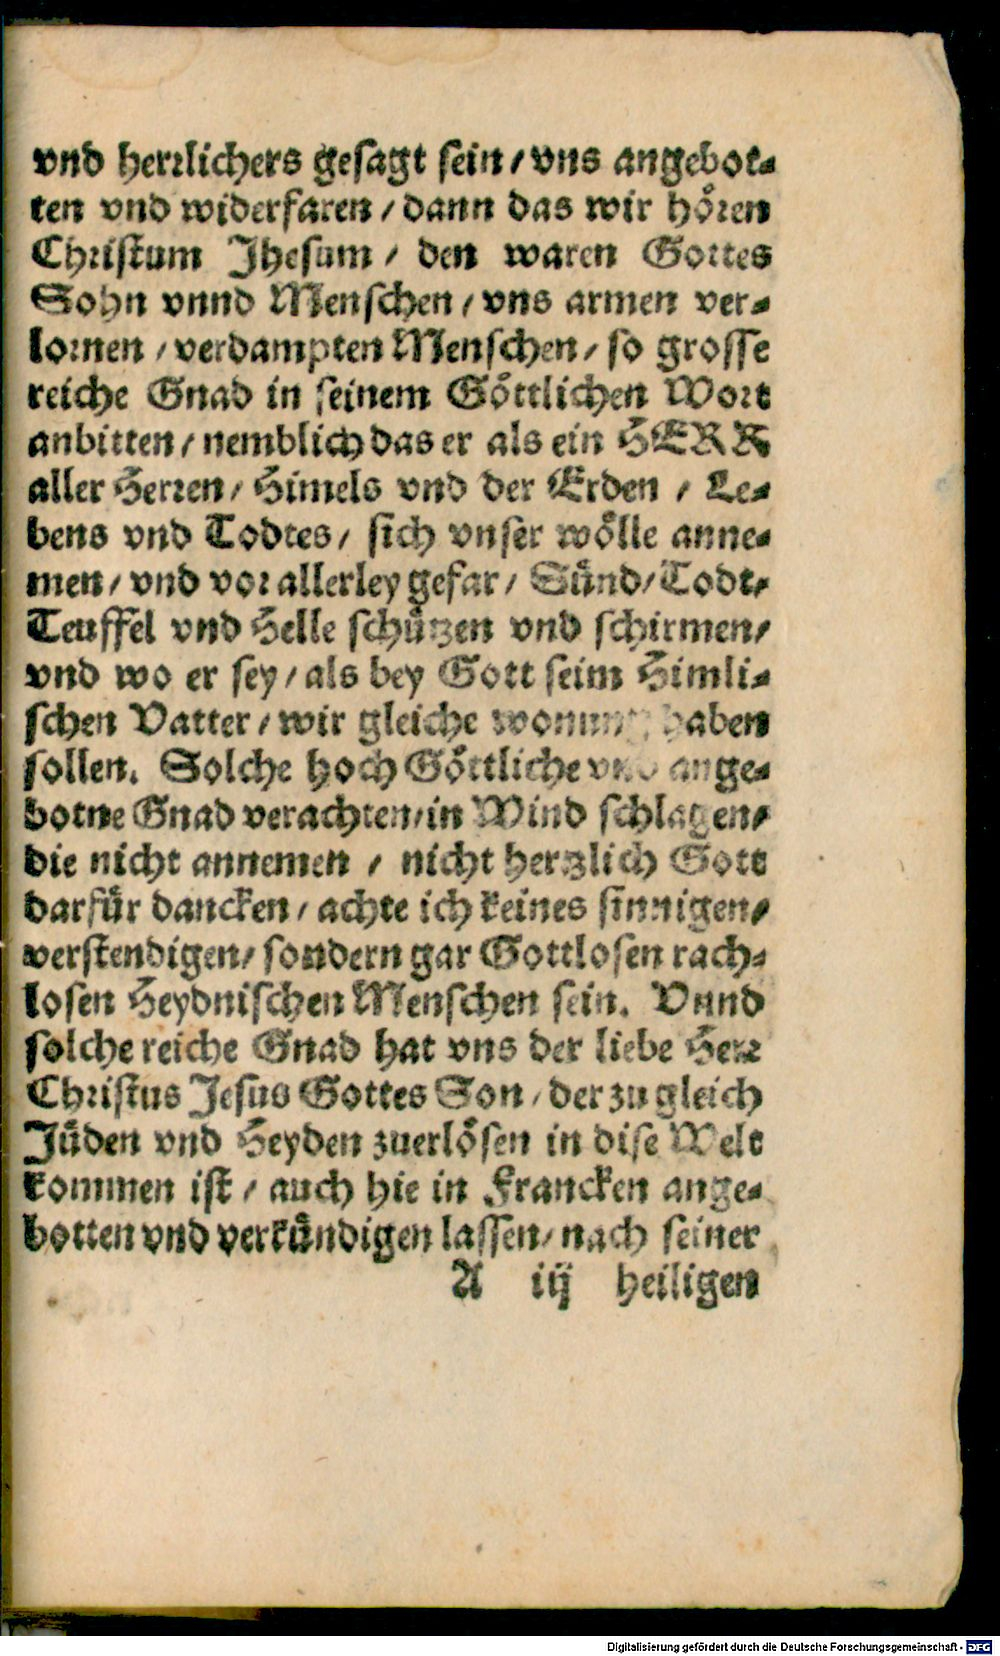 vnd herrlichers gesagt sein / vns angebot-
ten vnd widerfaren / dann das wir hören
Christum Jhesum / den waren Gottes
Sohn vnnd Menschen / vns armen ver-
lornen / verdampten Menschen / so grosse
reiche Gnad in seinem Göttlichen Wort
anbitten / nemblich das er als ein HERR
aller Herren / Himels vnd der Erden / Le-
bens vnd Todtes / sich vnser wölle anne-
men / vnd vor allerley gefar / Sünd / Todt /
Teuffel vnd Helle schützen vnd schirmen /
vnd wo er sey / als bey Gott seim Himli-
schen Vatter / wir gleiche wonung haben
sollen. Solche hoch Göttliche vnd ange-
botne Gnad verachten / in Wind schlagen /
die nicht annemen / nicht hertzlich Gott
darfür dancken / achte ich keines sinnigen /
verstendigen / sondern gar Gottlosen rach-
losen Heydnischen Menschen sein. Vnnd
solche reiche Gnad hat vns der liebe Herr
Christus Jesus Gottes Son / der zu gleich
Jüden vnd Heyden zuerlösen in dise Welt
kommen ist / auch hie in Francken ange-
botten vnd verkündigen lassen / nach seiner
A iij heiligen
Digitalisierung gefördert durch die Deutsche Forschungsgemeinschaft - DFG